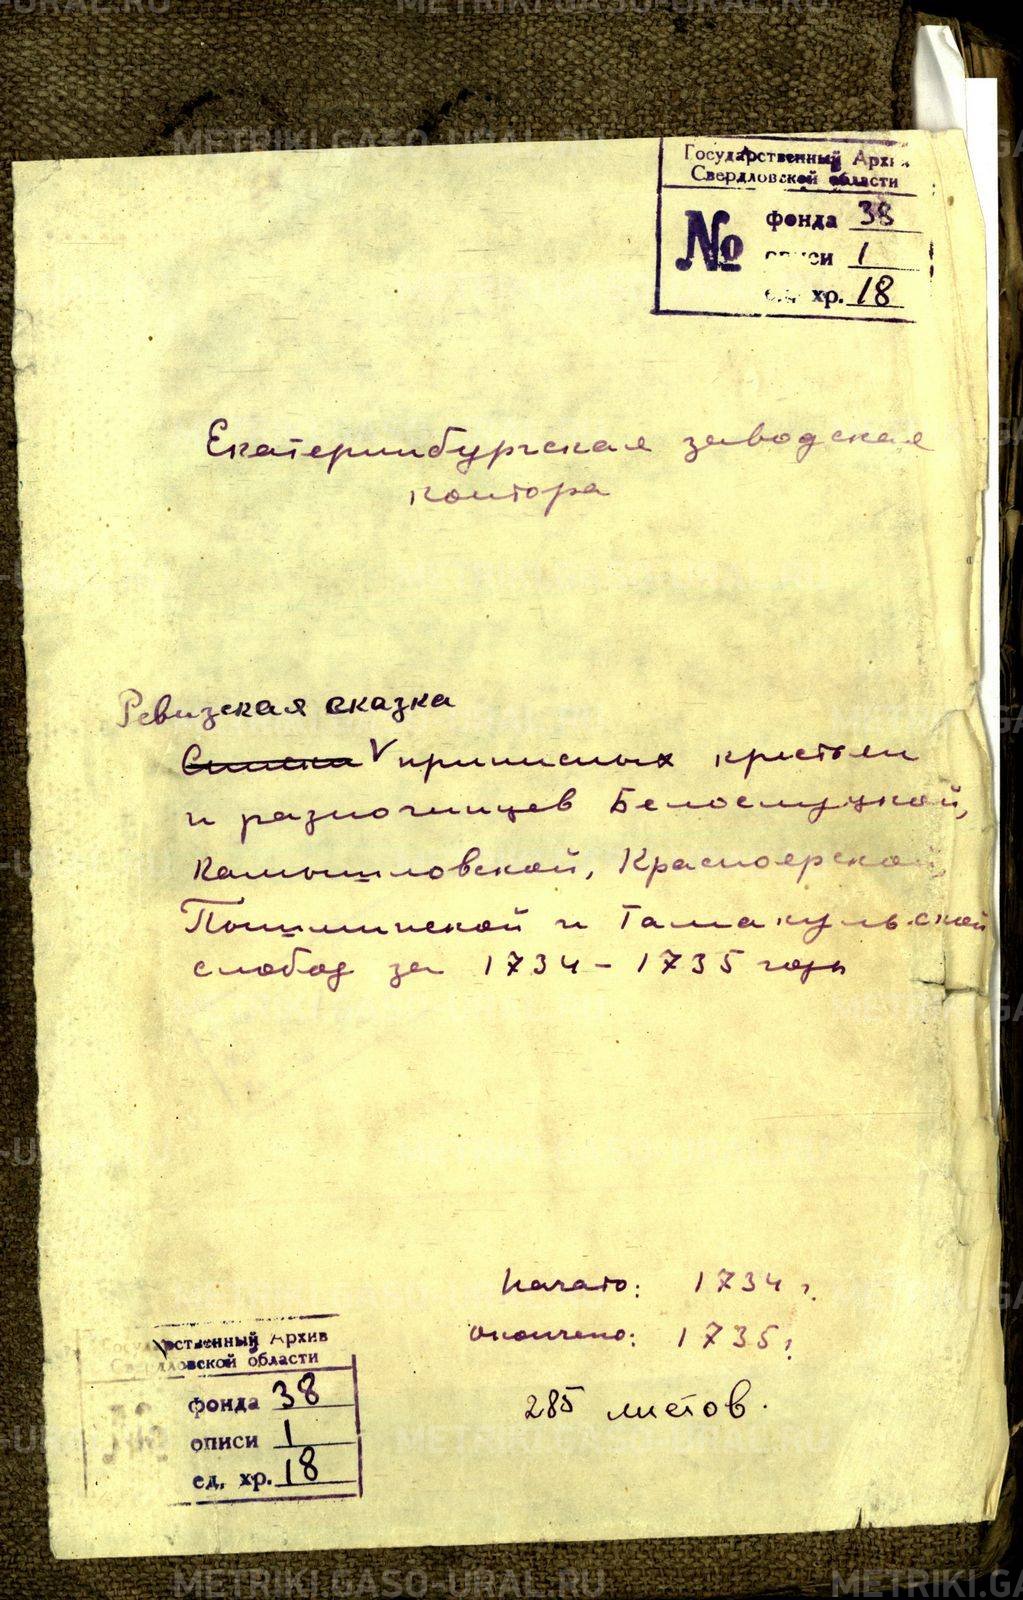 Государственный Архив
Свердловской области
№
фонда 38
описи 1
ед. хр. 18
Екатеринбургская заводская
контора
Ревизская сказка
Списки V приписных крестьян
и разночинцев Белослуцкой,
Камышловской, Красноярской
Пышминской и Тамакульской
слобод за 1734 - 1735 годы
Начато: 1734 г.
Окончено: 1735 г.
285 листов.
Государственный Архив
Свердловской области
№
фонда 38
описи 1
ед. хр. 18
METRIKI.GASO-URAL.RU